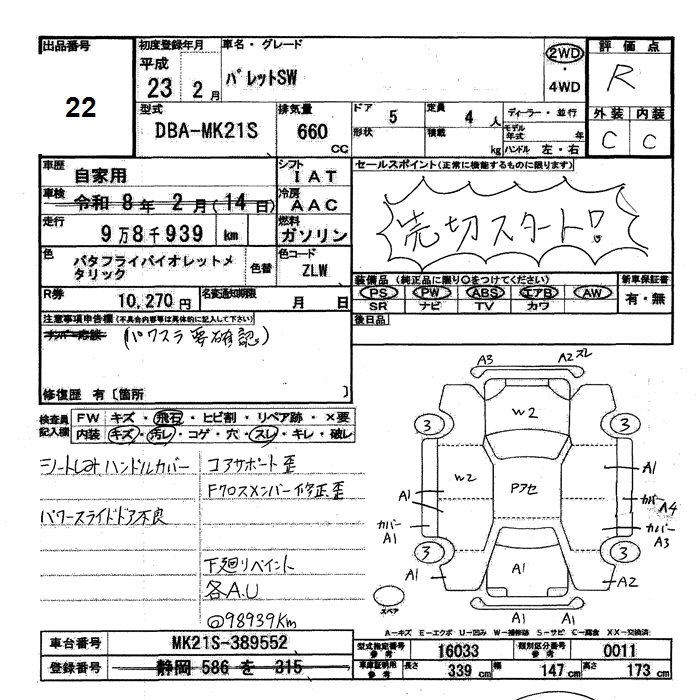 出品番号
22
初度登録年月
平成
23 2 月
車名・グレード
パレットSW
2WD
・
4WD
評価点
R
外装 内装
C C
型式
DBA-MK21S
排気量
660
CC
ドア 5
定員 4 人
ディーラー・並行
形状
積載 kg
モデル年式 年
ハンドル 左・右
車歴
自家用
シフト
IAT
車検
令和 8年 2月(14日)
冷房
AAC
走行
9万8千939 km
燃料
ガソリン
色
パタフライバイオレットメタリック
色替
色コード
ZLW
R券
10,270円
名変通知期限
月 日
セールスポイント(正常に機能するものに限ります)
売切スタート!
装備品(純正品に限り○をつけてください)
PS PW ABS エアB AW
SR ナビ TV カワ
新車保証書
有・無
後日品
注意事項申告欄(不具合内容等は具体的に記入して下さい)
(パワスラ要確認)
修復歴 有〔箇所 〕
検査員記入欄
FW キズ・飛石・ヒビ割・リペア跡・×要
内装 キズ・汚レ・コゲ・穴・スレ・キレ・破レ
シートしみ、ハンドルカバー
コアサポート歪
Fクロスメンバー修正歪
パワースライドドア不良
下廻リペイント
各A.U
@98939Km
A3 A2 スレ
W2
3 3
W2
Pアセ
A1
A1
カバー A4
カバー A1
カバー A3
3 3
A1
A1
A2
スペア
A1 A1
A-キズ E-エクボ U-凹み W-補修跡 S-サビ C-腐食 XX-交換済
車台番号
MK21S-389552
登録番号
静岡 586 を 315
型式指定番号 参考
16033
類別区分番号 参考
0011
車庫証明用 参考
長さ 339 cm
幅 147 cm
高さ 173 cm